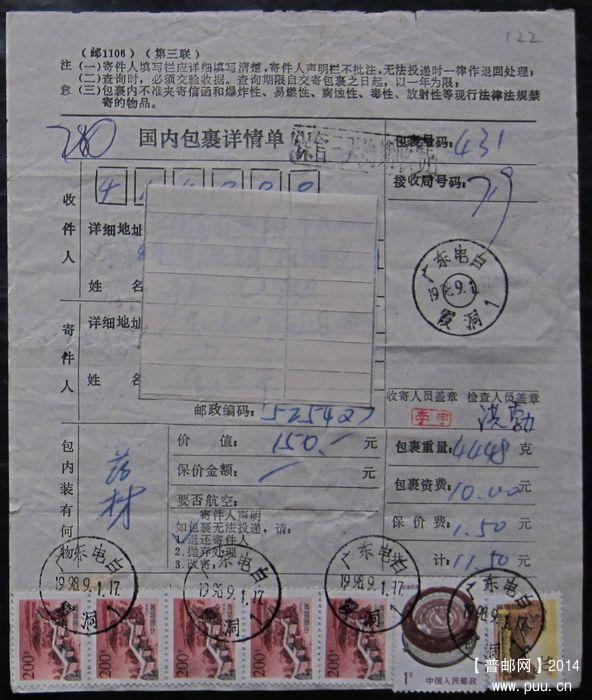 122
(邮1106) (第三联)
注 (一)寄件人填写拦应详细填写清楚,寄件人声明栏不批注,无法投递时一律作退回处理;
(二)查询时,必须交验收据。查询期限自交寄包裹之日起,以一年为限;
意 (三)包裹内不准夹寄信函和爆炸性、易燃性、腐蚀性、毒性、放射性等现行法律法规禁
寄的物品。
国内包裹详情单
包裹号码: 431
接收局号码: 79
收件人
详细地址
姓 名
广东电白
霞洞 1
寄件人
详细地址
姓 名
邮政编码: 525427
收寄人员盖章 检查人员盖章
李宇
包内装有何物
药材
价 值: 150.— 元
保价金额: — 元
要否航空:
寄件人声明
如包裹无法投递,请:
1.退还寄件人
2.抛弃处理
3.改寄:
包裹重量: 4448 克
包裹资费: 10.00 元
保 价 费: 1.50 元
计: 11.50 元
广东电白
1998.9.1.17
霞洞
广东电白
1998.9.1.17
霞洞
广东电白
1998.9.1.17
广东电白
1998.9.1.17
霞洞
200
200
200
200
200
中国邮政
1元
中国人民邮政
【普邮网】2014
www.puu.cn